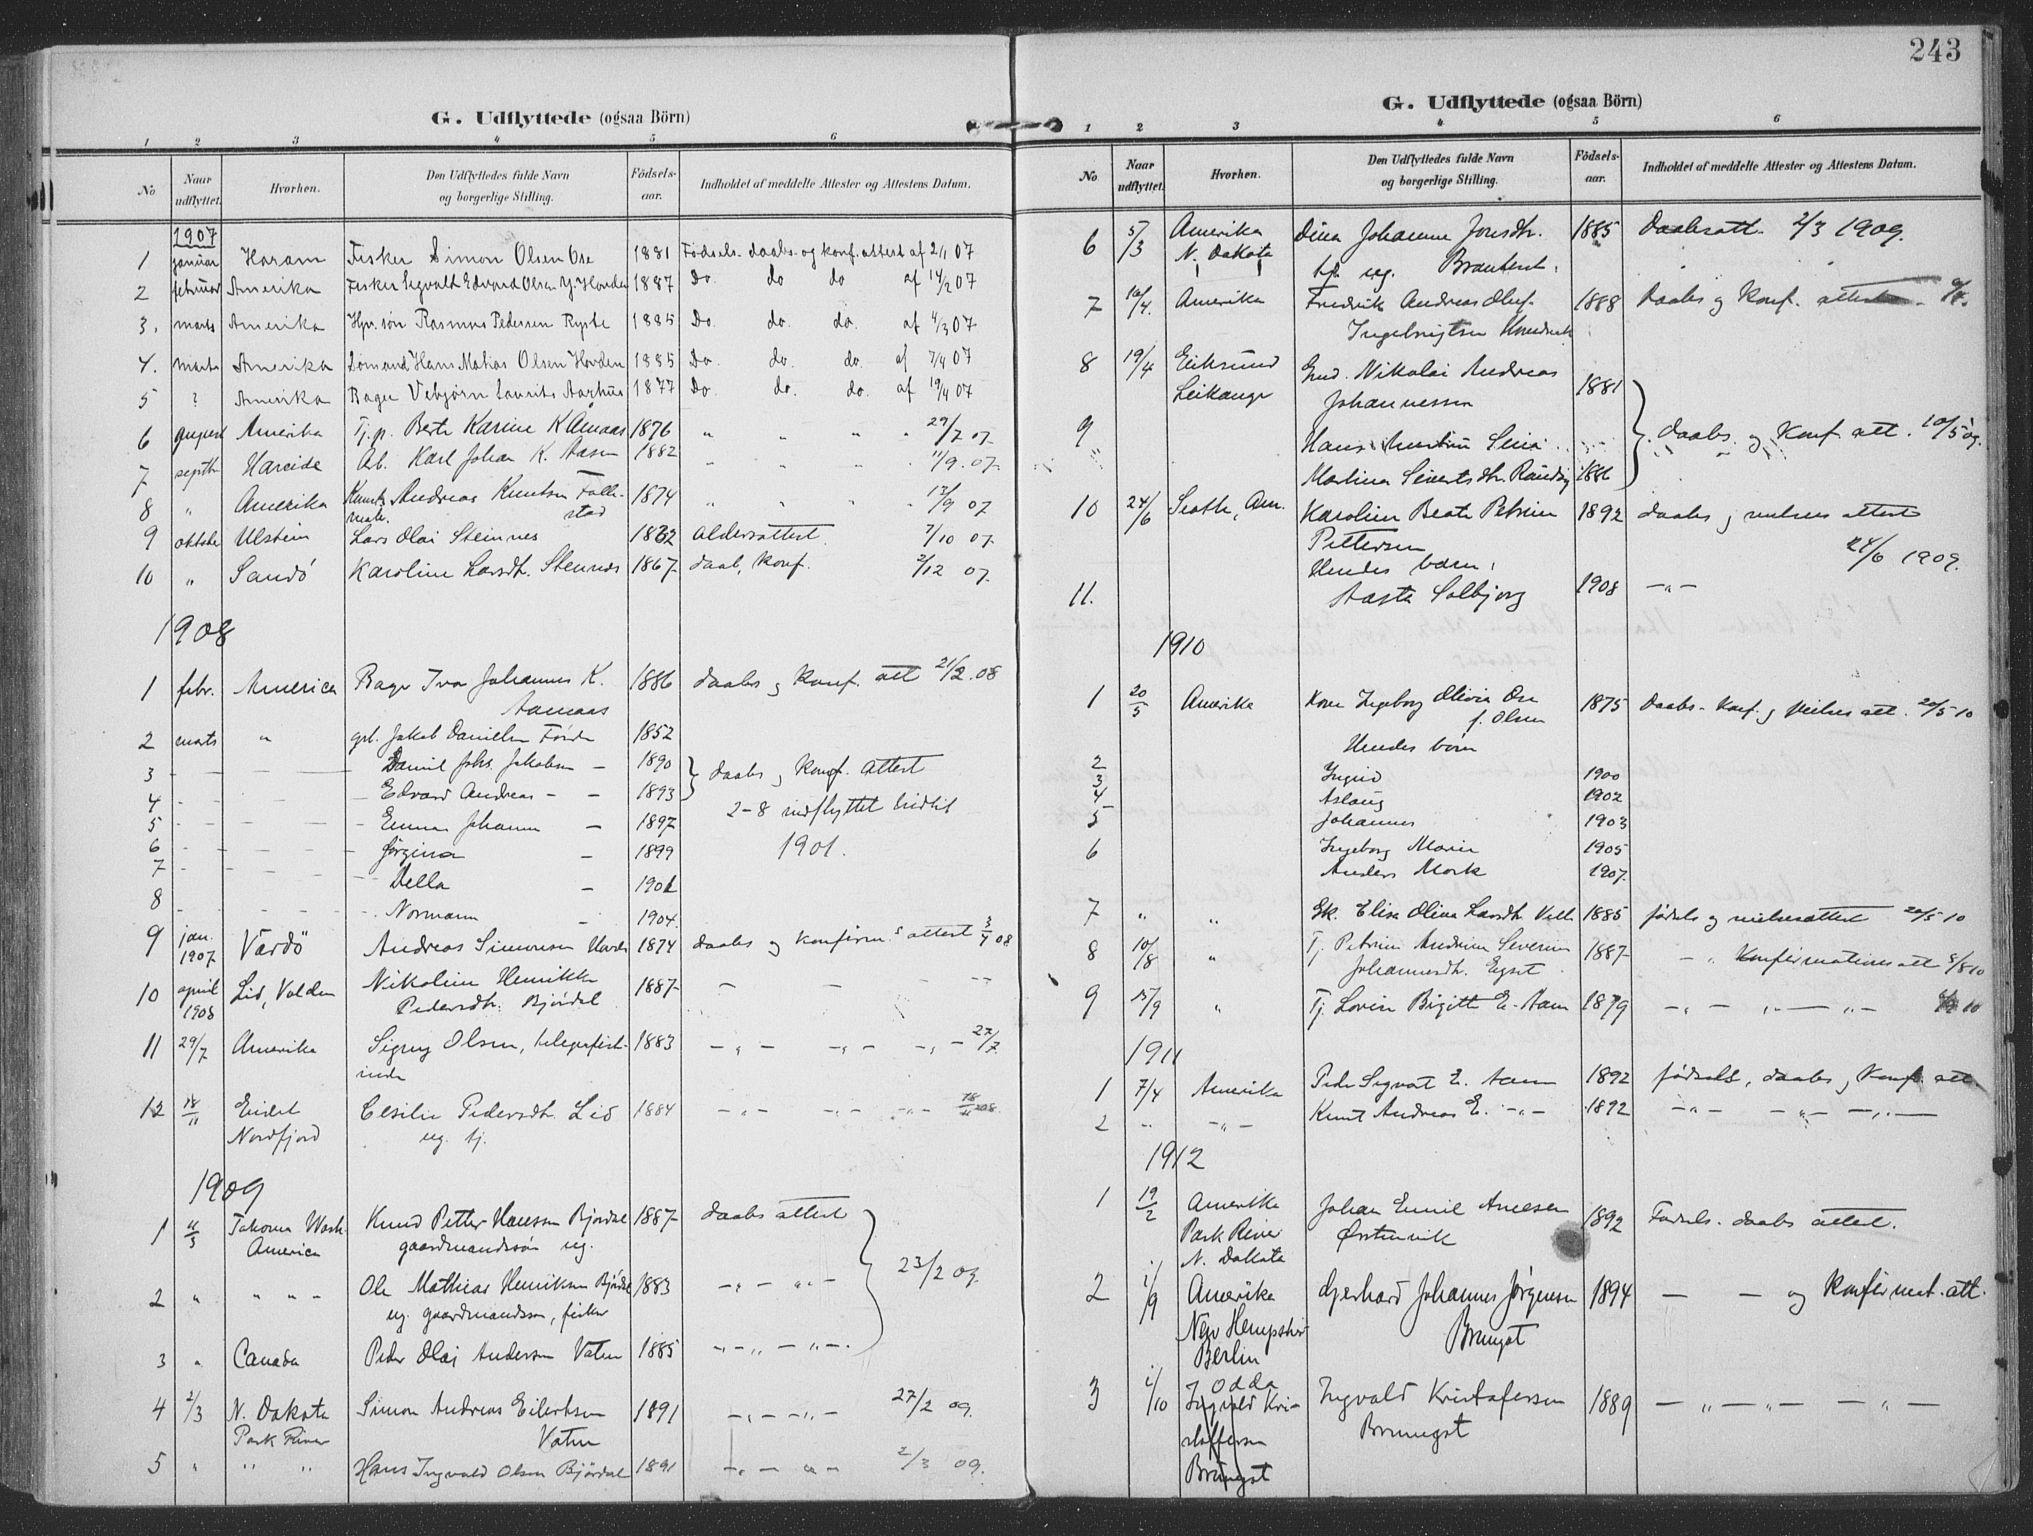 G. Udflyttede (ogsaa Börn)
1 2 3 4 5 6
No Naar udflyttet. Hvorhen. Den Udflyttedes fulde Navn og borgerlige Stilling. Fødsels-aar. Indholdet af meddelte Attester og Attestens Datum.
1907
1 januar Haram Fisker Simon Olsen Ose 1881 Fødsels- daabs- og konf. attest af 2/1 07
2 februar Amerika Fisker Sigvald Edvard Olsen Y. Hovden 1887 Do do do af 14/2 07
3. marts Amerika Rasmus Pedersen Ryste 1885 Do. do. do. af 4/3 07
4. marts Amerika Sømand Hans Matias Olsen Hovden 1885 Do do. do. af 7/4 07
5 ? Amerika Bager Vebjørn Laurits Aarhus 1877 Do do. do. af 19/4 07
6 august Amerika Tj.p. Berte Karine K Aamaas 1876 " " " " 29/7 07.
7 septbr Hareide Ab. Karl Johan K. Aasen 1882 " " " 11/9. 07.
8 " Amerika Andreas Knutsen Follestad 1874 " " " 13/9 07
9 oktbr Ulstein Lars Olai Steinnes 1862 aldersattest. 7/10 07.
10 " Sandö Karoline Larsdtr. Stennes 1867 daab, konf. 2/12 07.
1908
1 febr. America Bager Ivar Johannes K. 1886 daabs og konf. att 21/2. 08
Aamaas
2 marts " gbl. Jakob Danielsen Förde 1852
3 — — — Daniel Johs. Jakobsen — 1890 daabs og konf. attest
4 - - - Edvard Andreas - - 1893 2-8 indflyttet hidtil
5 - - - Emma Johanne — 1897
6 - - - Jørgina - 1899 1901.
7 - - - Della - 1901
8 - - - Normann - 1904.
9 jan. 1907. Vardö Andreas Simonsen 1874 daabs og konfirm.s attest 3/4 08
10 april 1908 Lid, Volden Nikoline Henrikke 1887 — — - -
Pedersdtr. Björdal
11 29/7 Amerika Signy Olsen, telegrafist- 1883 - " - - " - - " - 27/7.
inde
12 18/11 Eidet Cesilie Pedersdtr. Lid 1884 - " - - " - - " - 18/11 08.
Nordfjord ug. tj.
1909
1 4/3 Takoma Wash. Knud Petter Hansen Bjordal 1887 daabs attest
America gaardmandssön ug.
23/2 09.
2 " " " " Ole Mathias Henriksen Björdal 1883 - " - " -
ug. gaardmandssøn, fisker
3 " Canada Peder Olai Andersen Vatne 1885 - " - " -
4 2/3 N. Dakota Simon Andreas Eilertsen 1891 - " - - " - 27/2 09.
Park River Vatne
5 " " " Hans Ingvald Olsen Björdal 1891 - " - " - 2/3 09.
243
G. Udflyttede (ogsaa Börn)
1 2 3 4 5 6
No Naar udflyttet. Hvorhen. Den Udflyttedes fulde Navn og borgerlige Stilling. Fødsels-aar. Indholdet af meddelte Attester og Attestens Datum.
6 5/3 Amerika Dina Johanne Jonsdtr. 1885 Daabsatt. 2/3 1909.
N. Dakota ug.
7 10/4. Amerika Fredrik Andreas Oluf 1888 Daabs og konf. attest
Ingebrigtsen
8 19/4 Eiksund Nikolai Andreas 1881
Leikange Johannessen
9 daabs og konf. att. 10/5 09.
Martine Sivertsdtr. 1886
10 24/6 Seattle, Am. Karoline Beate Petrine 1892 daabs og vielses attest
Pettersen 24/6 1909.
Hendes barn:
11. Aasta Solbjørg 1908 - " -
1910
1 20/5 Amerika Kone Ingeborg Olivia Ose 1875 Daabs- konf. og vielses att. 20/5 10
f. Olsen
Hendes børn
2 Ingrid 1900
3 Aslaug 1902
4 Johannes 1903
5 Ingeborg Marie 1905
6 Anders Mork 1907.
7 " " Elise Oline Larsdtr 1885 fødsels og vielsesattest 20/5 10
8 10/8 " Tj. Petrine Andrine Severine 1887 - " konfirmations att 8/8 10
Johannesdtr. Egset
9 15/9 " Tj. Lovise Birgitte E. Aam 1879 - " - " - " - 10
1911
1 7/4 Amerika Peder Sigvat E. Aam 1892 fødsels, daabs og konf. att.
2 " - " - Knut Andreas E. - " - 1892 - " - - " - - " -
1912
1 19/2 Amerika Johan Emil Andresen 1892 Fødsels- daabs attest.
Park River Ørstenvik
N. Dakota
2 1/9 Amerika Gerhard Johannes Jørgensen 1894 — — og konfirmat. att.
New Hempshire Brungot
Berlin
3 1/10 Odda Ingvald Kristofersen 1889 - " - " - - " -
Ingvald Kri- Brungot
stoffersen
Brungot